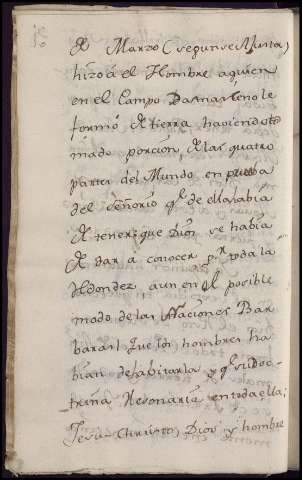 de Marzo (segun se ajusta)
hizo á el Hombre aquien
en el Campo Damas ceno le
formó de tierra haviendo to
mado porcion, de las quatro
partes del Mundo en prueba
del señorio q.e de ella havia
de tener; que Dios se havia
de dar a conocer p.r toda la
aun en el posible
modo de las Naciones Bar
baras! que los hombres ha
bian de abitarla y q.e su Doc-
trina Resonaria en toda ella;
Jesu-Christo, Dios y hombre